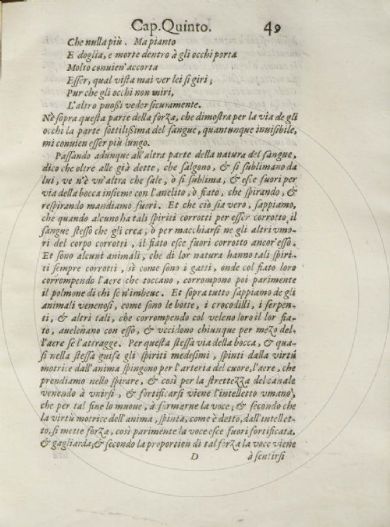 Cap. Quinto. 49
Che nulla più. Ma pianto
E doglia, e morte dentro à gli occhi porta
Molto conuien'accorta
Esser, qual vista mai ver lei si giri;
Pur che gli occhi non miri,
L'altro puossi veder sicuramente.
Nè sopra questa parte della forza, che dimostra per la via de gli
occhi la parte sottilissima del sangue, quantunque inuisibile,
mi conuien esser più lungo.
Passando adunque all'altra parte della natura del sangue,
dico che oltre alle già dette, che salgono, & si sublimano da
lui, ve n'è vn'altra che sale, ò si sublima, & esce fuori per
via della bocca insieme con l'anelito, ò fiato, che spirando, &
respirando mandiamo fuori. Et che ciò sia vero, sappiamo,
che quando alcuno ha tali spiriti corrotti per esser corrotto, il
sangue stesso che gli crea, ò per macchiarsi ne gli altri vmo-
ri del corpo corrotti, il fiato esce fuori corrotto ancor'esso.
Et sono alcuni animali, che di lor natura hanno tali spiri-
ti sempre corrotti, sì come sono i gatti, onde col fiato loro
corrompendo l'aere che toccano, corrompono poi parimente
il polmone di chi se n'imbeue. Et sopra tutto sappiamo de gli
animali venenosi, come sono le botte, i crocodilli, i serpen-
ti, & altri tali, che corrompendo col veleno loro il lor fia-
to, auelenano con esso, & vccidono chiunque per mezo del-
l'aere se l'attragge. Per questa stessa via della bocca, & qua-
si nella stessa guisa gli spiriti medesimi, spinti dalla virtù
motrice dall'anima spingono per l'arteria del cuore, l'aere, che
prendiamo nello spirare, & così per la strettezza del canale
venendo à vnirsi, & fortificarsi viene l'intelletto vmano,
che per tal fine lo muoue, à formarne la voce; & secondo che
la virtù motrice dell'anima, spinta, come è detto, dall'intellet-
to, si mette forza, così parimente la voce esce fuori fortificata,
& gagliarda, & secondo la proportion di tal forza la voce viene
D à sentirsi